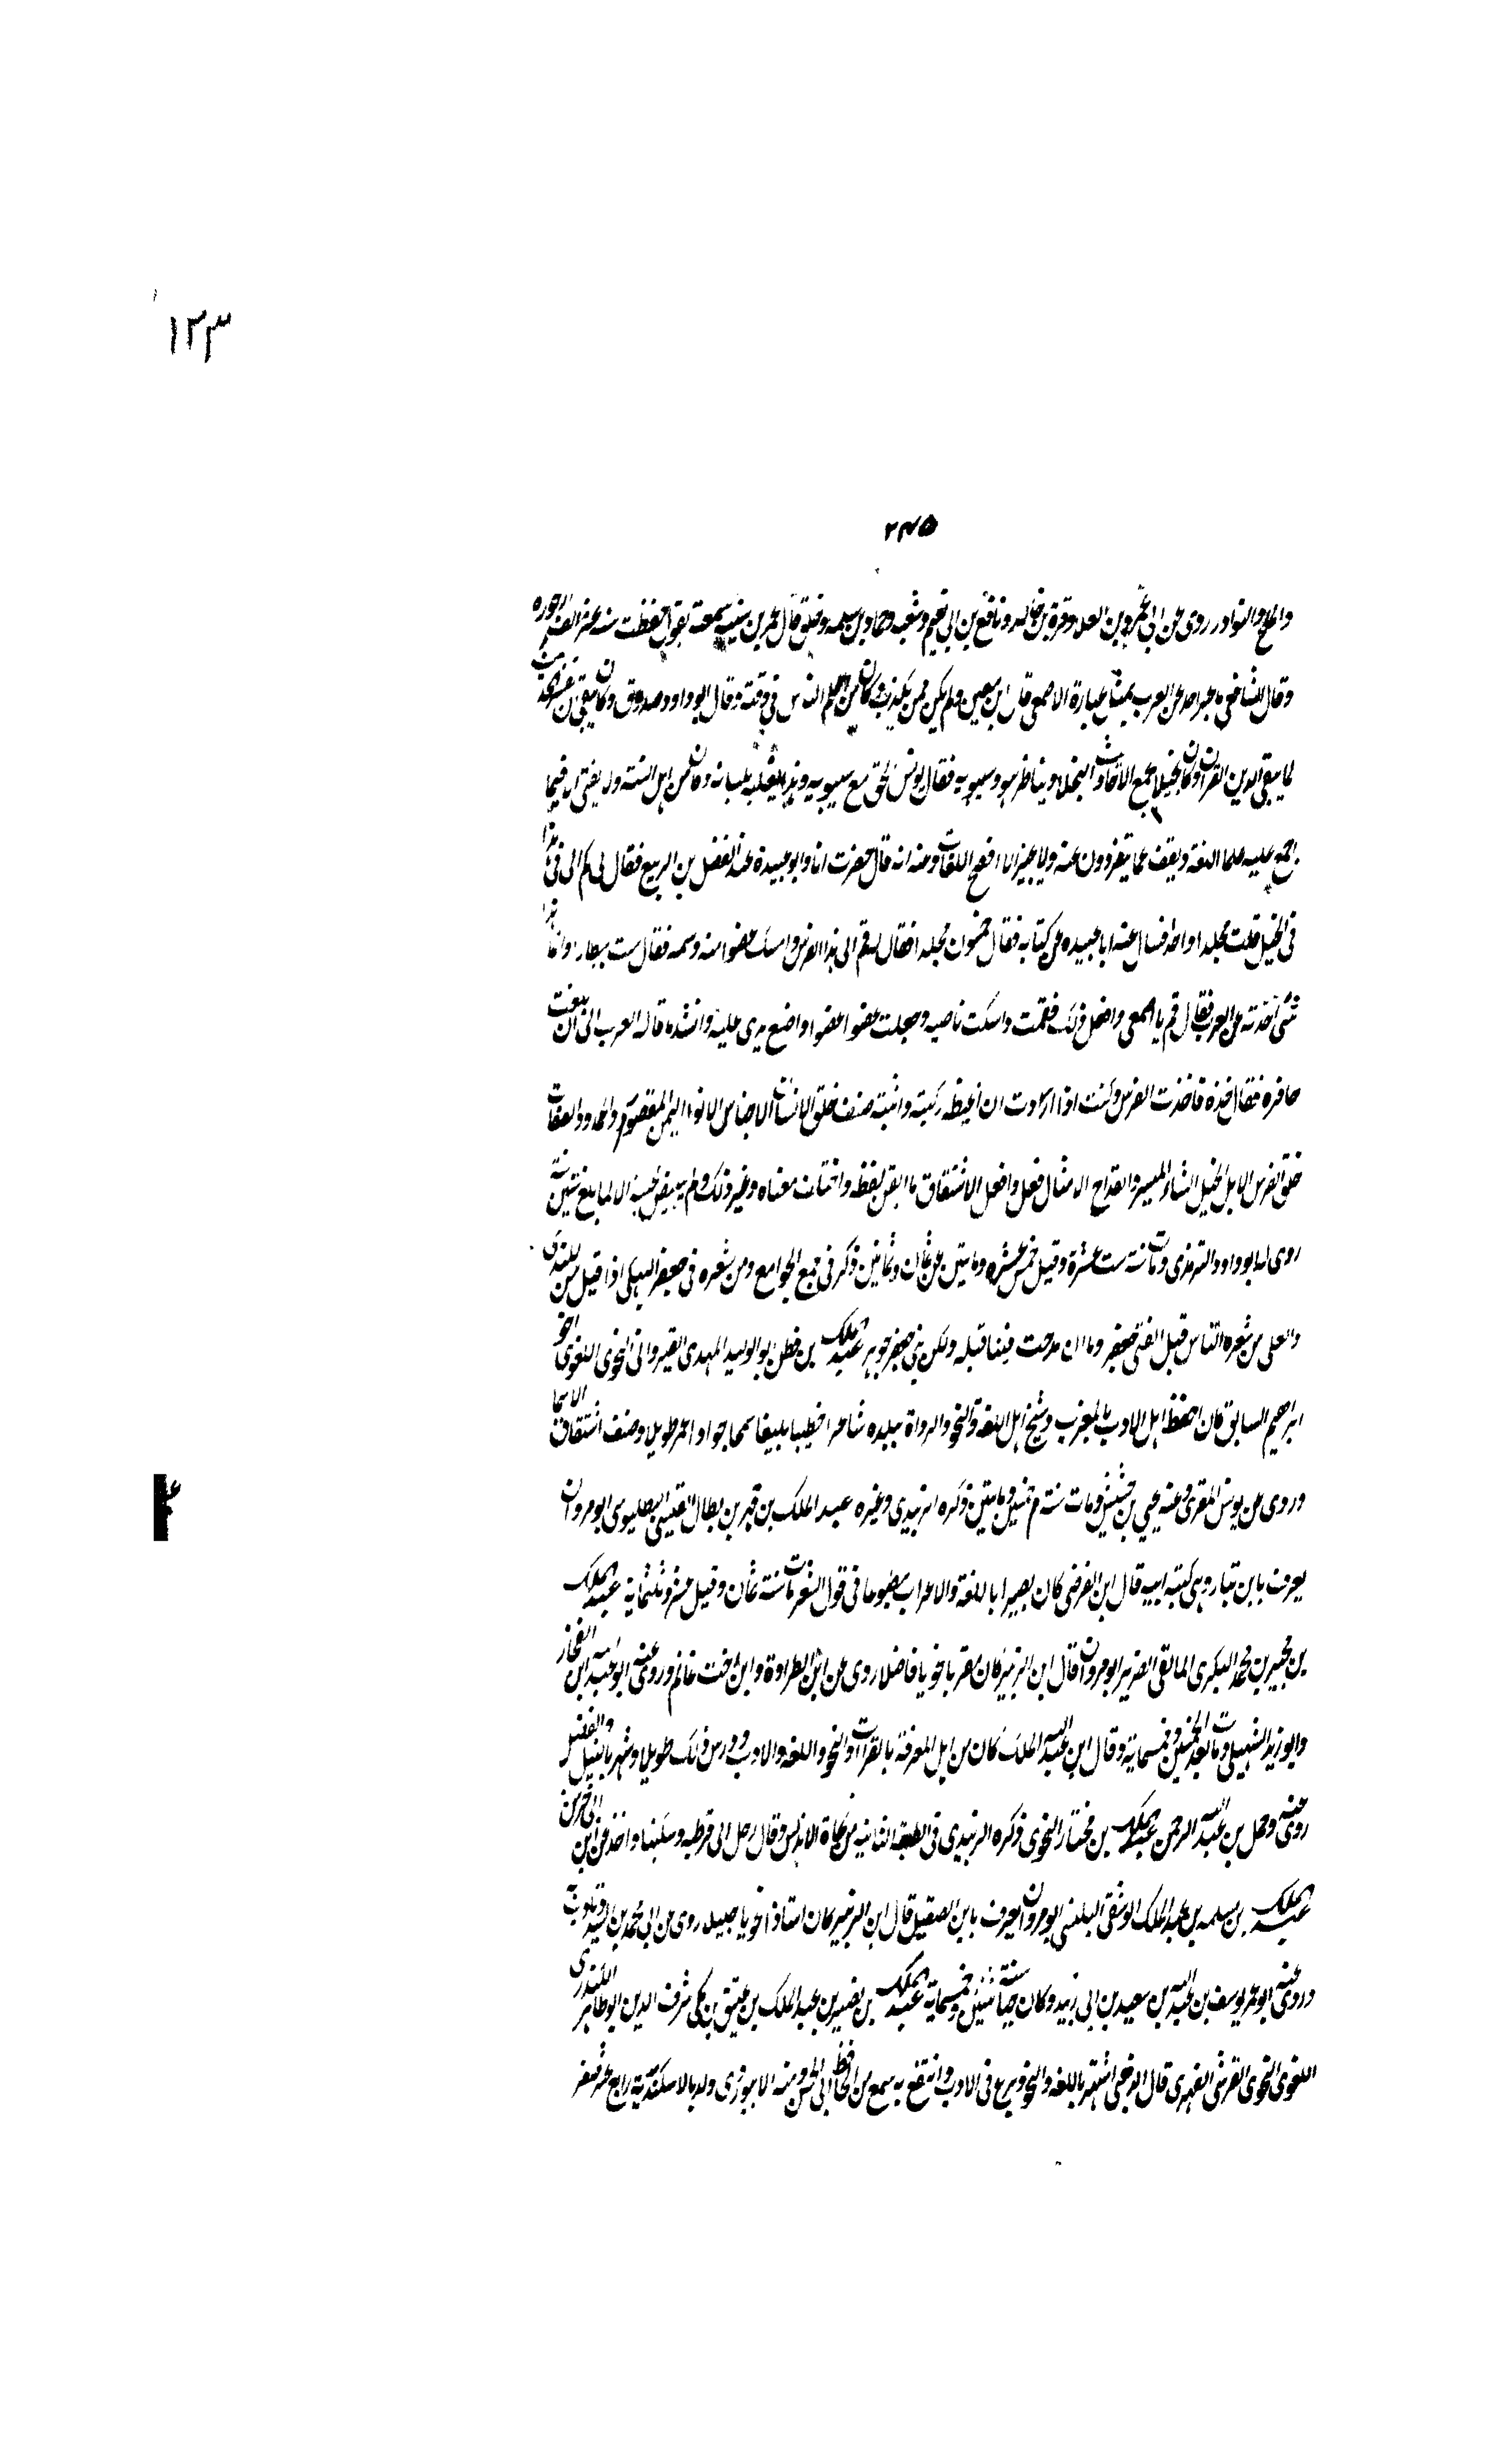 ١٣٣
٢٤٥
والملح والنوادر روى عن ابى عمرو بن العلا وقرة بن خالد ونافع بن ابى نعيم وشعبه وحماد بن سلمه وخلق قال عمر بن شبه سمعته يقول حفظت سته عشر الف ارجوزه
وقال الشافعى ما عبر احد عن العرب بمثل عبارة الاصمعى قال ابن معين ولم يكن ممن يكذب وكان من اعلم الناس فى وقته وقال ابو داود صدوق وكان يتقى ان يفسر الحديث
كما يتقى ان يفسر القرآن وكان بخيلا يجمع احاديث البخلا ويناظر هو وسيبويه فقال يونس الحق مع سيبويه وهذا يغلبه بلسانه وكان من اهل السنة ولا يفتى الا فيما
اجمع عليه علما اللغة ويقف عما يتفردون عنه ولا يجيز الا افصح اللغات وعنه انه قال حضرت انا وابو عبيدة عند الفضل بن الربيع فقال لى كم كتابك
فى الخيل قلت مجلد واحد فسال عنه ابا عبيده عن كتابه فقال خمسون مجلدا فقال له قم الى هذا الفرس وامسك عضوا منه وسمه فقال لست بيطارا وانما هذا
شئ اخذته عن العرب فقال قم يا اصمعى وافعل ذلك فقمت وامسكت ناصيه وجعلت عضوا عضوا واضع يدى عليه وانشد ما قاله العرب الى ان بلغت
حافره فقال خذه فاخذت الفرس وكنت اذا اردت ان اغيظه ركبته واتيته صنف خلق الانسان الاجناس الانواء الهمز المقصور والممدود الصفات
خلق الفرس الابل الخيل الشاء الميسر والقداح الامثال فعل وافعل الاشتقاق ما اتفق لفظه واختلف معناه وغير ذلك ولم يبيض لحيته الا لما بلغ ستين سنة
روى له ابو داود والترمذى ومات سنة ست عشرة وقيل خمس عشره ومايتين عن ثمان وثمانين ذكر فى جمع الجوامع ومن شعره فى جعفر البرمكى اذا قيل من للندى
والعلى من شعره الناس قيل الفتى جعفر وما ان مدحت فتى قبله ولكن بنى جعفر جوهر عبد الملك بن قطن ابو الوليد المهدى القيروانى النحوى اللغوى اخو
ابراهيم السابق كان احفظ اهل الادب بالمغرب وشيخ اهل اللغة والنحو والرواة ببلده شاعرا خطيبا بليغا سمحا جوادا عمر طويلا وصنف اشتقاق الاسما
وروى عن يونس المقرى وعنه يحيى بن خشيش ومات سنة خمسين ومايتين ذكره الزبيدى وغيره عبد الملك بن بطال القيسى البطليوسى ابو مروان
يعرف بابن تيار وهى كنية ابيه قال ابن الفرضى كان بصيرا باللغة والاعراب مطبوعا فى قول الشعر مات سنة ثمان وقيل عشر وثلثماية عبد الملك
بن مجبر بن محمد البكرى المالقى الضرير ابو مروان قال ابن الزبير كان مقريا نحويا فاضلا روى عن ابن الطراوة وابن اخت غانم وروى عنه ابو عبد الله ابن الفخار
وابو زيد السهيلى ومات بعد الخمسين وخمسماية وقال ابن عبد الملك كان من اهل المعرفة بالقرات والنحو واللغة والادب ودرس ذلك طويلا وشهر بالنبل والفضل
روى عنه وحل بن عبد الله الرحمن عبد الملك بن مختار النحوى ذكره الزبيدى فى الطبقة الثانيه من نحاة الاندلس وقال رحل الى قرطبه وسكنها واخذ عن ابن
عبد الملك بن مسلمه بن عبد الملك الوشقى البلنسى ابو مروان يعرف بابن الصقيل قال ابن الزبير كان استاذا نحويا جليلا روى عن ابى محمد بن السيد
وروى عنه ابو عمر يوسف بن عبد الله بن سعيد بن ابى زيد وكان حيا سنة وخمسماية عبد الملك بن نصير بن عبد الملك بن عتيق بن مكى شرف الدين ابو طاهر
اللغوى النحوى القرشى الفهرى قال الذهبى اشتهر باللغة والنحو وبرع فى الادب وانتفع به سمع من الحافظ ابى الحسن ومنه ولد بالاسكندرية رابع عشر صفر